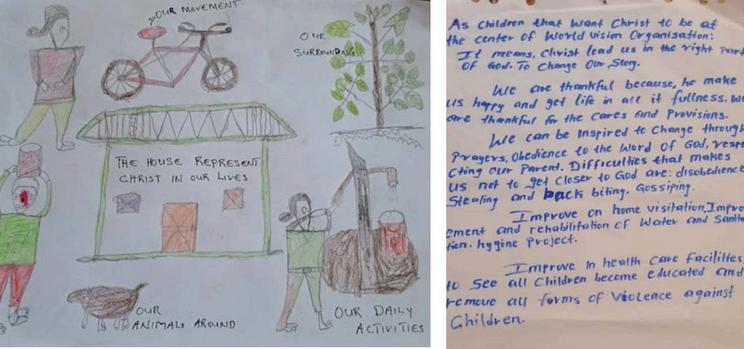 OUR MOVEMENT
OUR
SURROUNDING
THE HOUSE REPRESENT
CHRIST IN OUR LIVES
OUR
ANIMALS AROUND
OUR DAILY
ACTIVITIES
As Children that Want Christ to be at
the center of World Vision Organisation:
It means, Christ lead us in the right
OF God. To Change Our Story.
We are thankful because, he make
us happy and get life in all it fullness. We
are thankful for the Cares and Provisions.
We can be Inspired to Change through
Prayers. Obedience to the Word of God, respe
cting Our Parent. Difficulties that makes
us not to get Closer to God are: disobedience
Stealing and back biting. Gossiping.
Improve on home visitation, Improv
ement and rehabilitation of Water and Sanita
tion. hygine Project.
Improve In health Care Facilities,
to See all Children become educated and
remove all forms of Violence against
Children.